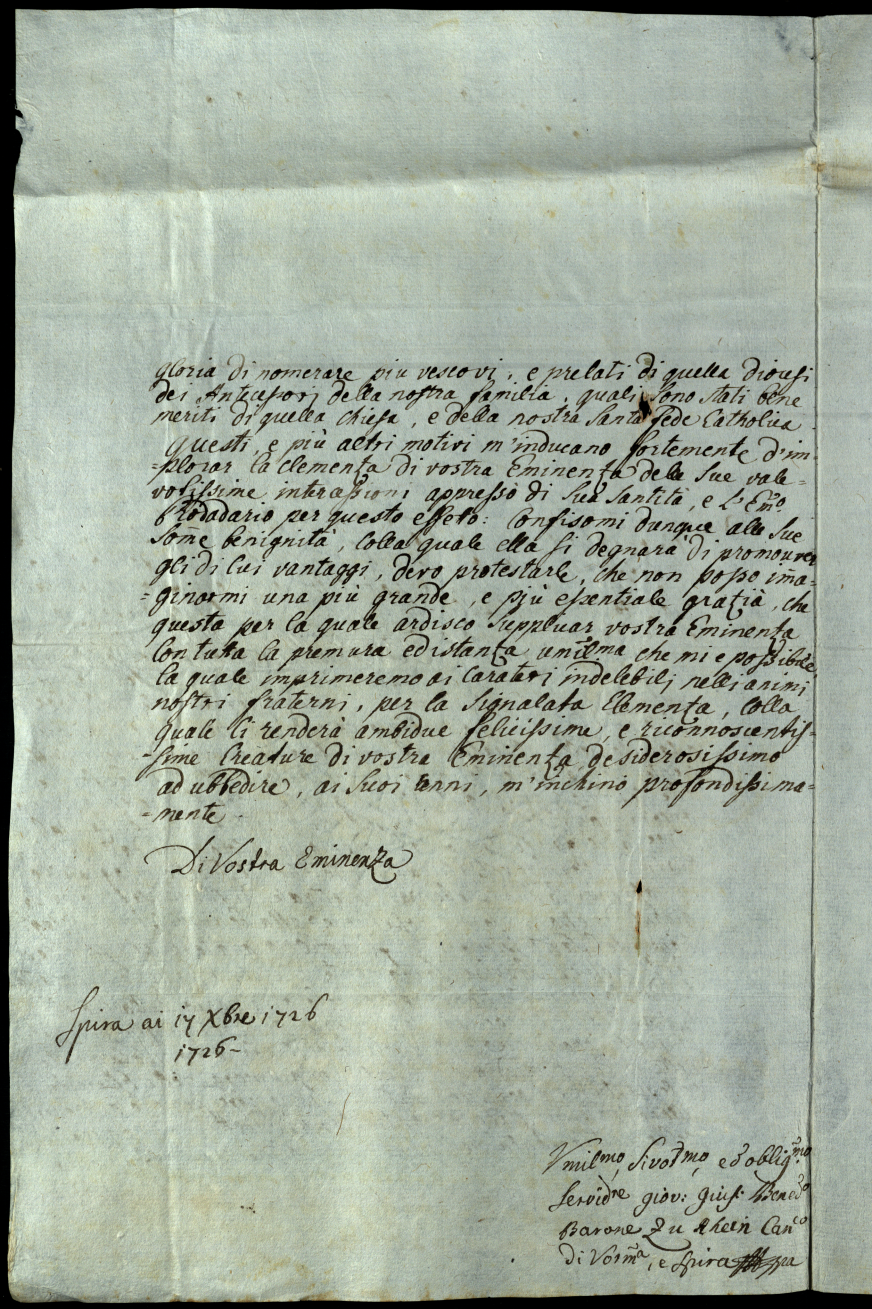 gloria di nomerare piu vescovi, e prelati di quella diocesi
dei Antecessorj della nostra familia, quali sono stati bene
meriti di quella chiesa, e della nostra Santa fede Catholica
Questi e più altri motivi m'inducano fortemente d'im-
=plorar la clementza di vostra Eminentza dele sue vale=
volissime, appresso di Sua Santità, e L'Em̃o.
per questo effeto: Confisomi dunque alle sue
som̃e benignità, colla quale ella si degnarà di promouver
gli di lui vantaggi, devo protestarle, che non posso im̃a=
=ginarmi una più grande, e pjù essentiale gratzià, che
questa per la quale ardisco suppluar vostra Eminentza
con tutta la premura ed istantza che mi e possibile
la quale imprimeremo ai carateri indelebilj nelli animi
nostri fraterni, per la signalata Clementza, colla
quale li renderà ambidue felicissime, e riconnoscentis=
=sime Creature di vostra Eminentza, desiderosissimo
ad ubbedire, ai suoi cenni, m'inchino profondissima=
=mente.
Di Vostra Eminenza
Spira ai 17 Xbre 1726
1726-
Vmilmo, ed obligm̃o
Servidre giov: Gius: Bened̃o
Barone Zu Rhein Canco
di Vorma, e Spira